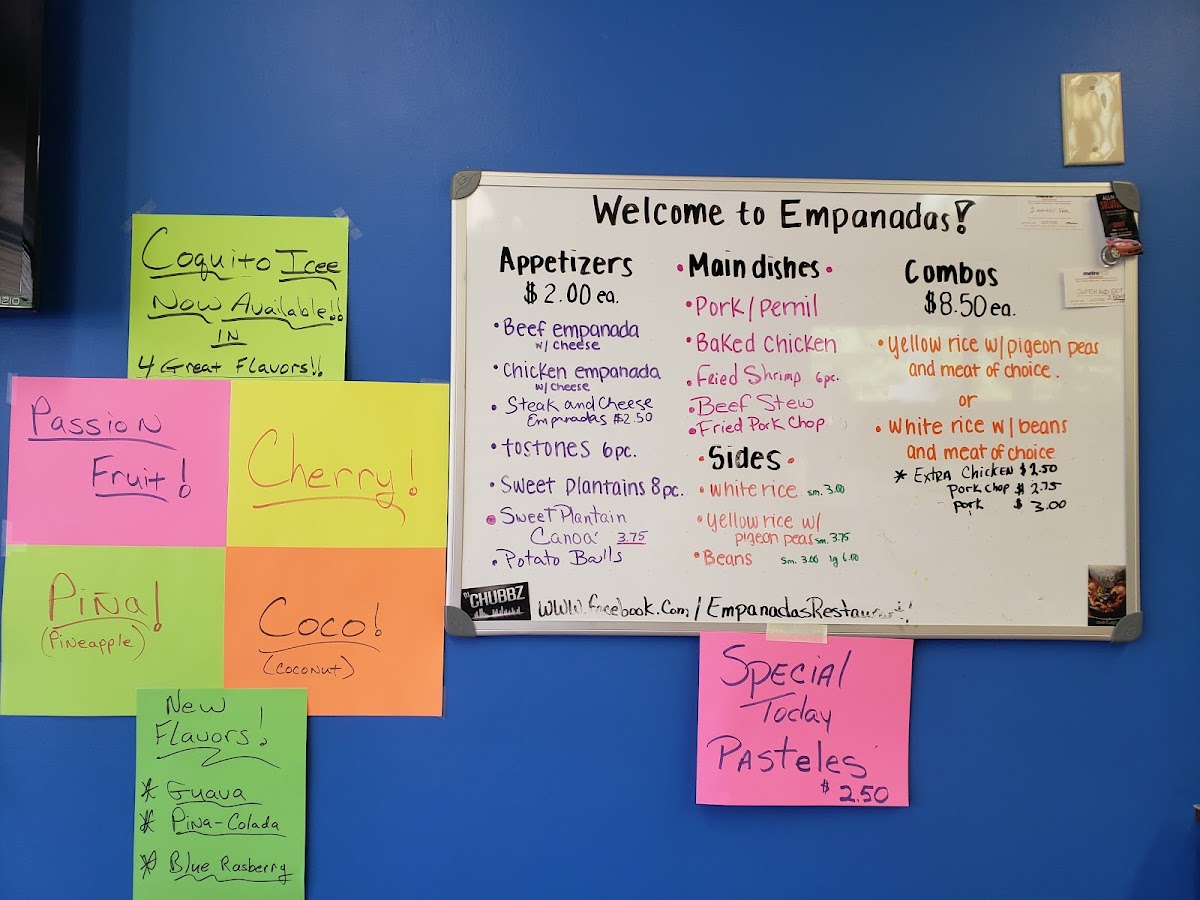 Coquito Icee
Now Available!!
IN
4 Great Flavors!!
Passion
Fruit!
Cherry!
Piña!
(Pineapple)
Coco!
(coconut)
New
Flavors!
* Guava
* Pina-Colada
* Blue Rasberry
Welcome to Empanadas!
Appetizers
$2.00 ea.
• Beef empanada
w/ cheese
• Chicken empanada
w/ cheese
• Steak and Cheese
Empanadas $2.50
• tostones 6pc.
• Sweet plantains 8pc.
• Sweet Plantain
Canoa 3.75
• Potato Balls
• Main dishes •
• Pork/pernil
• Baked Chicken
• Fried Shrimp 6pc.
• Beef Stew
• Fried Pork Chop
• Sides •
• white rice sm. 3.00
• Yellow rice w/
pigeon peas sm. 3.75
• Beans sm. 3.00 lg 6.00
Combos
$8.50 ea.
• Yellow rice w/pigeon peas
and meat of choice.
or
• White rice w/beans
and meat of choice
* Extra Chicken $1.50
Pork chop $2.75
Pork $3.00
CHUBBZ
www.facebook.com/EmpanadasRestaurant!
metro
Special
Today
Pasteles
$2.50